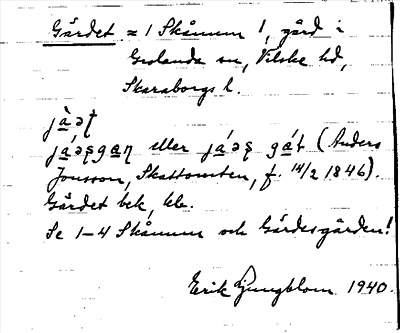 Gärdet = 1 Skånum 1, gård i
Grolanda sn, Vilske hd,
Skaraborgs l.
jàət
já̱əʂga̱ɳ eller já̱əʂ gá̱t (Anders
Jonsson, Skattomten, f. 14/2 1846).
Gärdet bek, kle.
Se 1-4 Skånum och Gärdesgården!
Erik Ljungblom 1940.